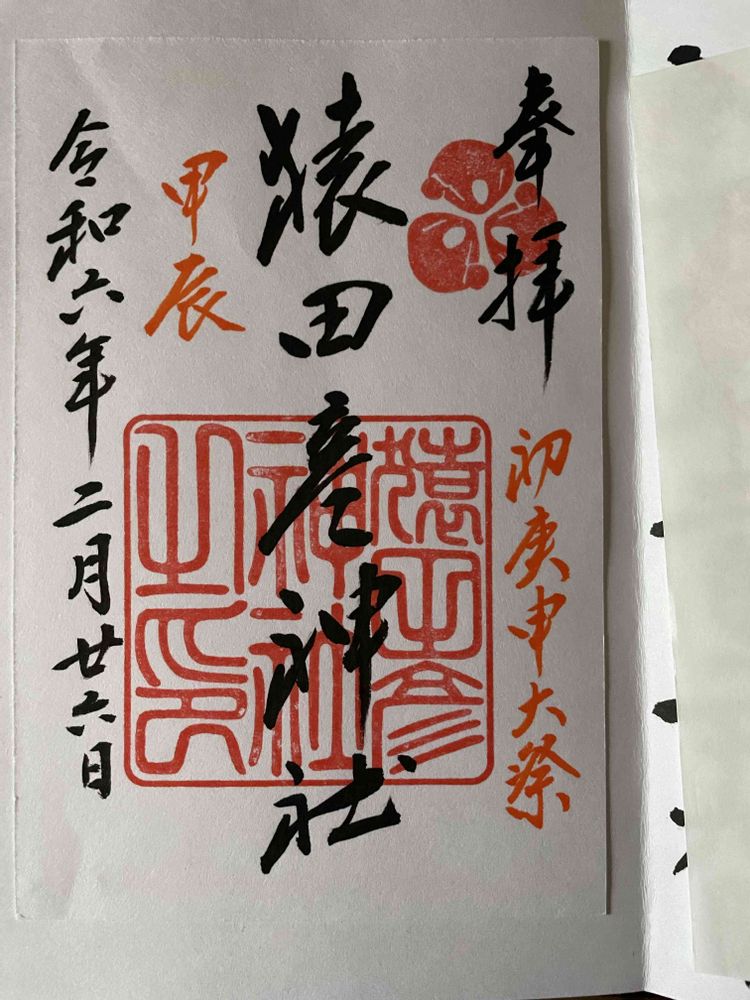 奉拝
初庚申大祭
猿田彦神社
甲辰
令和六年二月廿六日
猿田彦
神社
之印